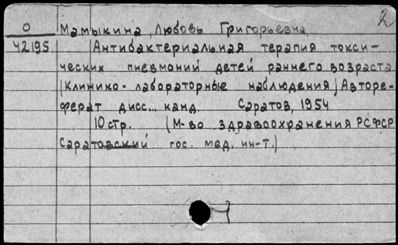 2
О Мамыкина, Любовь Григорьевна
42195 Антибактериальная терапия токси-
ческих пневмоний детей раннего возраста
(Клинико-лабораторные наблюдения) Авторе-
ферат дисс... канд. Саратов, 1954
10 стр. (М-во здравоохранения РСФСР
Саратовский гос. мед. ин-т.)